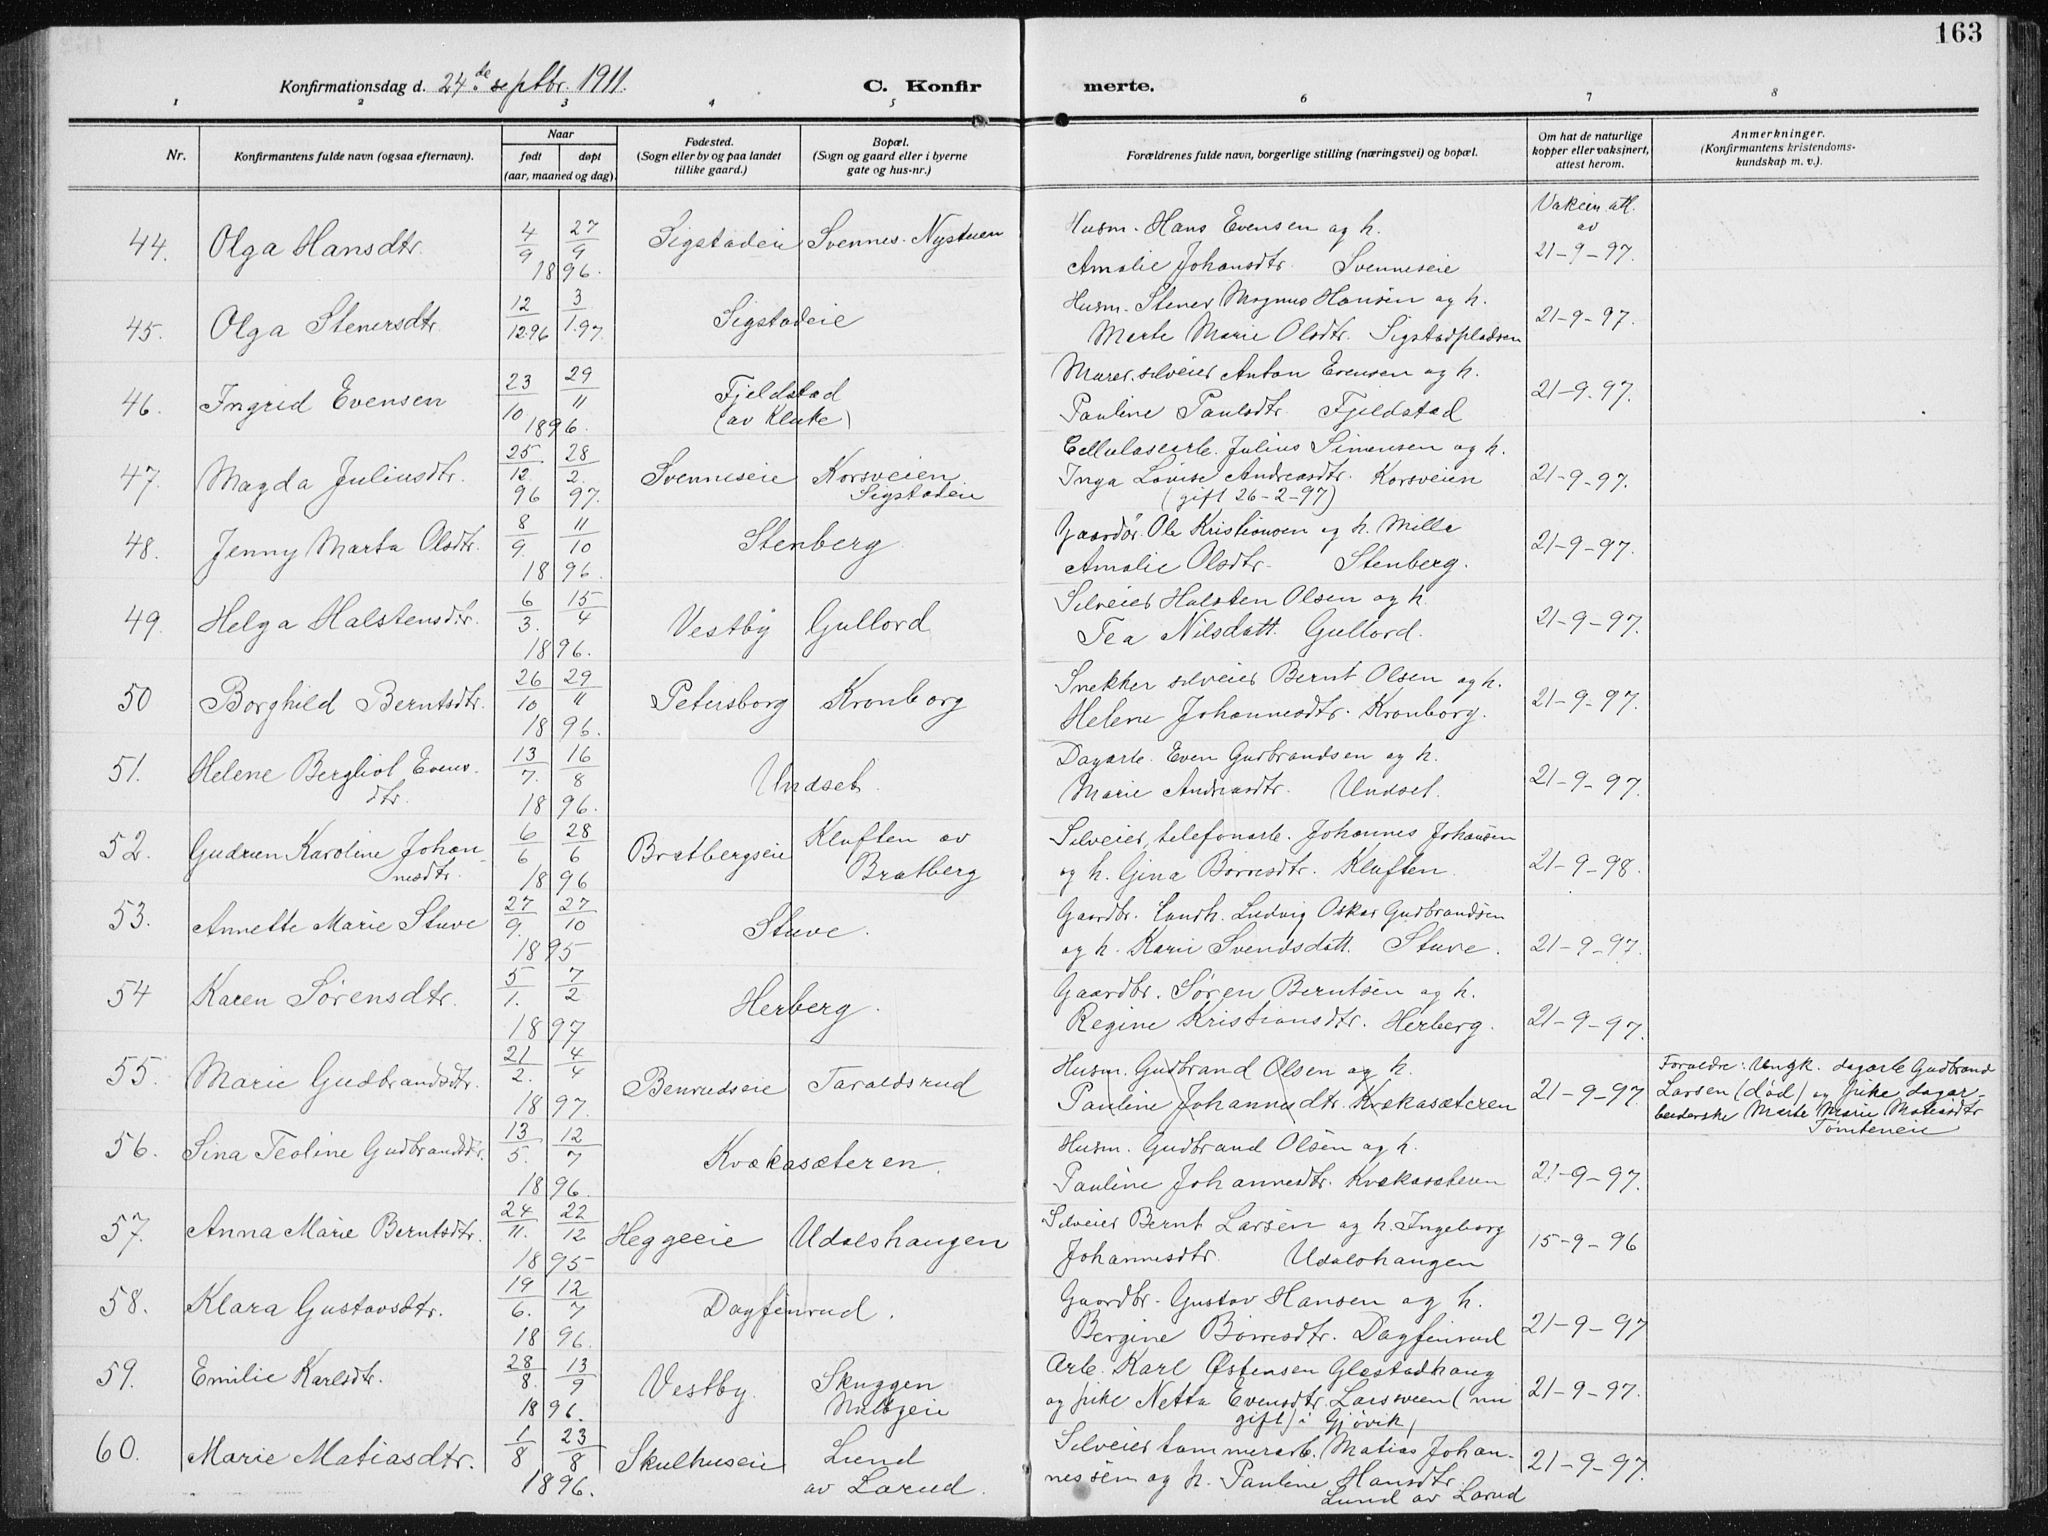 163
Konfirmationsdag d. 24de septbr. 1911.
C. Konfirmerte.
1 2 3 4 5 6 7 8
Nr. Konfirmantens fulde navn (ogsaa efternavn). Naar født døpt (aar, maaned og dag). Fødested. (Sogn eller by og paa landet tillike gaard.) Bopæl. (Sogn og gaard eller i byerne gate og hus-nr.) Forældrenes fulde navn, borgerlige stilling (næringsvei) og bopæl. Om hat de naturlige kopper eller vaksinert, attest herom. Anmerkninger. (Konfirmantens kristendomskundskap m. v.).
44. Olga Hansdtr. 4/9 27/9 1896. Sigstadeie Svennes-Nystuen Husm. Hans Evensen og h. Vaksin. att. av
Amalie Johansdtr. Svenneseie 21-9-97.
45. Olga Stenersdtr. 12/12.96 3/1.97 Sigstadeie Husm. Stener Magnus Hansen og h.
Marte Marie Olsdtr. Sigstadpladsen 21-9-97.
46. Ingrid Evensen 23/10 29/11 1896. Fjeldstad (av Kluke) Murer. selveier Anton Evensen og h.
Pauline Paulsdtr. Fjeldstad 21-9-97.
47. Magda Juliusdtr. 25/12. 96 28/2. 97. Svenneseie Korsveien Sigstadeie Cellulosearb. Julius Simensen og h.
Inga Lovise Andreasdtr. Korsveien
(gift 26-2-97) 21-9-97.
48. Jenny Marta Olsdtr. 8/9. 11/10 1896. Stenberg Gaardbr. Ole Kristiansen og h. Mille
Amalie Olsdtr. Stenberg. 21-9-97.
49. Helga Halstensdtr. 6/3. 15/4 1896. Vestby Gullord Selveier Halsten Olsen og h.
Tea Nilsdatt. Gullord. 21-9-97.
50 Borghild Berntsdtr. 26/10 29/11 1896. Petersborg Kronborg Snekker selveier Bernt Olsen og h.
Helene Johannesdtr. Kronborg. 21-9-97.
51. Helene Bergliot Evensdtr. 13/7. 16/8 1896. Undset. Dagarb. Even Gudbrandsen og h.
Marie Andreasdtr. Undset. 21-9-97.
52. Gudrun Karoline Johannesdtr. 6/6 28/6 1896 Bratbergseie Kluften av Bratberg Selveier, telefonarb. Johannes Johansen
og h. Gina Børresdtr. Kluften. 21-9-98.
53. Annette Marie Stuve 27/9. 27/10 1895 Stuve. Gaardbr. Landh. Ludvig Oskar Gudbrandsen
og h. Karie Svendsdatt. Stuve. 21-9-97.
54 Karen Sørensdtr. 5/1. 7/2 1897 Herberg. Gaardbr. Søren Berntsen og h.
Regine Kristiansdtr. Herberg. 21-9-97.
55. Marie Gudbrandsdtr. 21/2. 4/4 1897. Benrudseie Taraldsrud Husm. Gudbrand Olsen og h.
Pauline Johannesdtr. Kvækasæteren 21-9-97. Foræ­ldre: Ungk. dagarb Gudbrand
Larsen (død) og pike dagar-
beiderske Marte Marie Matiasdtr
Tømteneie
56. Sina Teoline Gudbrandsdtr. 13/5. 12/7 1896. Kvækasæteren. Husm. Gudbrand Olsen og h.
Pauline Johannesdtr. Kvækasæteren 21-9-97.
57. Anna Marie Berntsdtr. 24/11. 22/12 1895 Heggeeie Udalshaugen Selveier Bernt Larsen og h. Ingeborg
Johannesdtr. Udalshaugen 15-9-96
58. Klara Gustavsdtr. 19/6. 12/7 1896. Dagfinrud. Gaardbr. Gustav Hansen og h.
Bergine Børresdtr. Dagfinrud 21-9-97
59. Emilie Karlsdtr. 28/8. 13/9 1896. Vestby. Skuggen Arb. Karl Østensen Glæstadhaug
og pike Netta Evensdtr. Larsveen (nu
gift) i Gjøvik) 21-9-97.
60. Marie Matiasdtr. 1/8 23/8 1896. Skulhuseie Lund av Larud. Selveier tømmerarb. Matias Johan-
nessen og h. Pauline Hansdtr.
Lund av Larud 21-9-97.